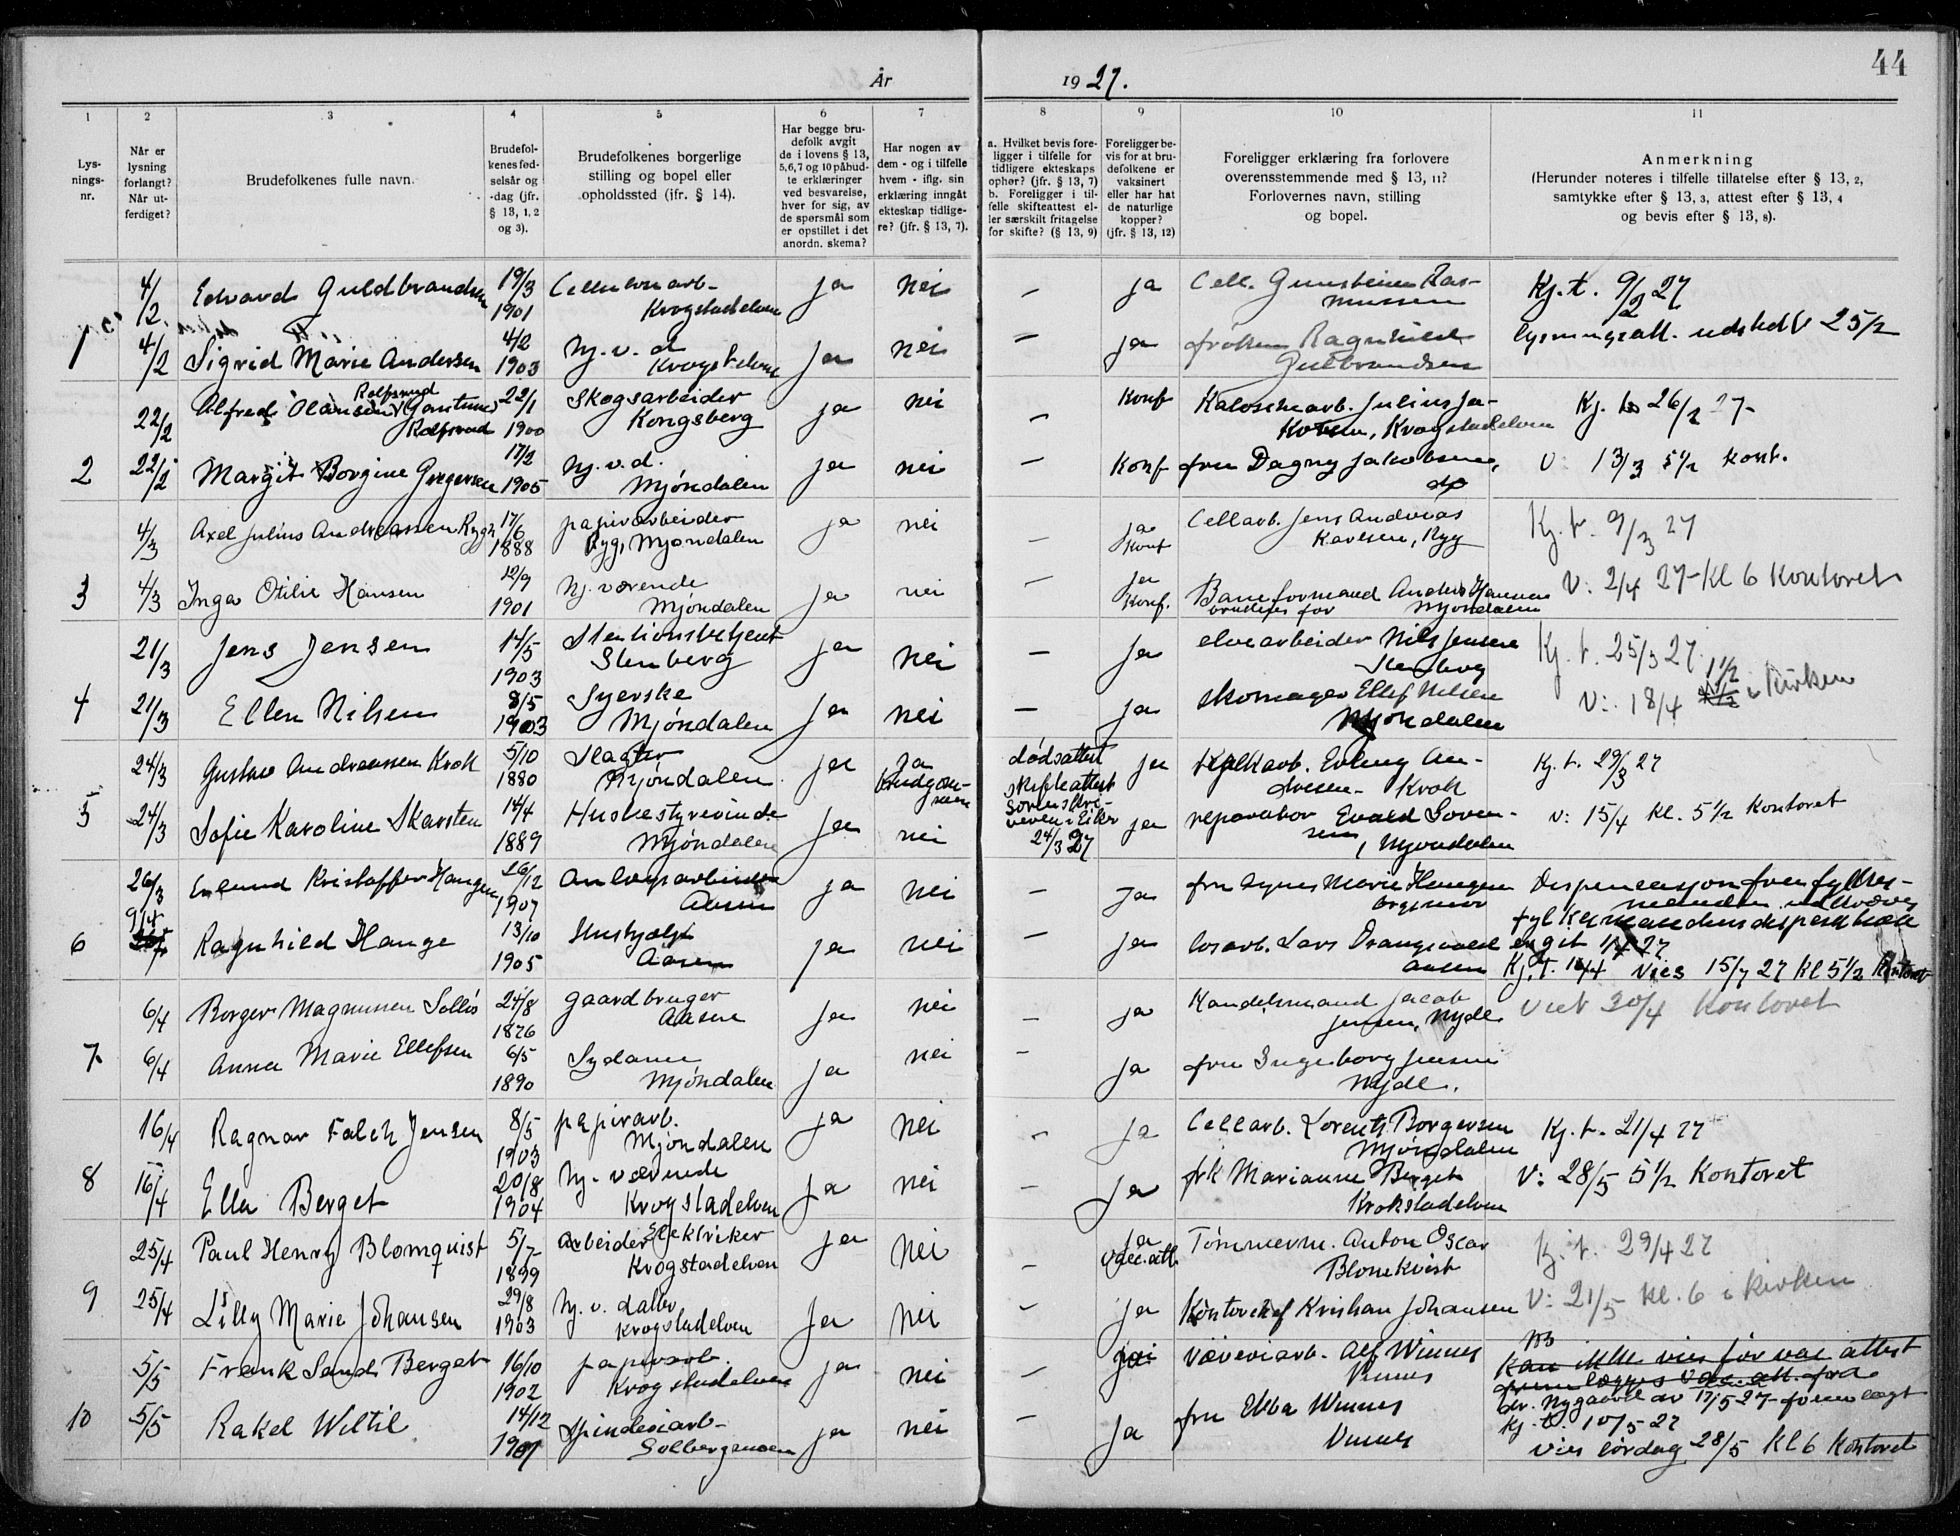 44
År 1927.
1 2 3 4 5 6 7 8 9 10 11
Lys-
nings-
nr.
Når er
lysning
forlangt?
Når ut-
ferdiget?
Brudefolkenes fulle navn.
Brudefol-
kenes fød-
selsår og
-dag (jfr.
§ 13, 1, 2
og 3).
Brudefolkenes borgerlige
stilling og bopel eller
opholdssted (jfr. § 14).
Har begge bru-
defolk avgit
de i lovens § 13,
5,6,7 og 10 påbud-
te erklæringer
ved besvarelse,
hver for sig, av
de spørsmål som
er opstillet i det
anordn. skema?
Har nogen av
dem - og i tilfelle
hvem - iflg. sin
erklæring inngåt
ekteskap tidlige-
re? (jfr. § 13, 7).
a. Hvilket bevis fore-
ligger i tilfelle for
tidligere ekteskaps
ophør? (jfr. § 13, 7)
b. Foreligger i til-
felle skifteattest el-
ler særskilt fritagelse
for skifte? (§ 13, 9)
Foreligger be-
vis for at bru-
defolkene er
vaksinert
eller har hat
de naturlige
kopper?
(jfr. § 13, 12)
Foreligger erklæring fra forlovere
overensstemmende med § 13, 11?
Forlovernes navn, stilling
og bopel.
Anmerkning
(Herunder noteres i tilfelle tillatelse efter § 13, 2,
samtykke efter § 13, 3, attest efter § 13, 4
og bevis efter § 13, 8).
4/2 Edvard Guldbrandsen 19/3 1901 Cellulosearb.
Krogstadelven ja nei — ja Cell. Gunsteinen Ras-
mussen Kj. t. 9/2 27
1 4/2 Sigrid Marie Andersen 4/2 1903 hj. v. d.
Krogstelven ja nei — ja frøken Ragnhild
Gulbrandsen lysningsatt. udsted 25/2
22/2 Alfred Olausen Rolfsrud (Gartnes)
Rolfsrud 22/1 1900 Skogsarbeider
Kongsberg ja nei — Konf Kalosjearb. Julius Ja-
kobsen, Krogstadelven Kj. t. 26/2 27-
2 22/2 Margit Borgine Gregersen 17/2 1905 hj. v. d.
Mjøndalen ja nei — Konf fru Dagny Jakobsen,
do V: 13/3 5 1/2 kont.
4/3 Axel Julius Andreassen Rygh 17/6 1888 papirarbeider
Ryg, Mjøndalen ja nei — ja
Konf Cellarb. Jens Andreas
Karlsen, Ryg Kj. t. 9/3 27
3 4/3 Inga Otilie Hansen 12/9 1901 hj. værende
Mjøndalen ja nei — ja
Konf. Baneformand Anders Hansen
brudens far Mjøndalen V: 2/4 27- Kl 6 Kontoret
21/3 Jens Jensen 14/5 1903 Stationsbetjent
Stenberg ja nei — ja elvearbeider Nils Jensen
Stenberg Kj. t. 25/3 27.
4 21/3 Ellen Nilsen 8/5 1903 Syerske
Mjøndalen ja nei — ja skomager Ellef Nilsen
Mjøndalen V: 18/4 1 1/2 i Kirken
24/3 Gustav Andreassen Krok 5/10 1880 Slagter
Mjøndalen ja Ja
brudgom-
men dødsattest
skifteattest
Sorenskri-
veren i Eiker
24/3 27 ja Kalkarb. Erling An-
dresen - Krok Kj. t. 29/3 27
5 24/3 Sofie Karoline Skarsten 14/4 1889 Husbestyrerinde
Mjøndalen ja nei ja reparatør Evald Soren-
sen, Mjøndalen v: 15/4 kl. 5 1/2 Kontoret
26/3 Erlend Kristoffer Haugen 26/12 1907 Anlægsarbeider
Aasen ja nei — ja fru Agnes Marie Haugen
Dispensasjon fra fylkes-
manden
6 9/4 Ragnhild Hauge 13/10 1905 Hushjælp
Aasen ja nei — ja losarb. Lars Orangsvold
Aasen fylkesmandens
Kj. T. 14/4 Vies 15/7 27 kl 5 1/2 Kontoret
6/4 Borger Magnussen Sollis 24/8 1876 gaardbruger
Aasen ja nei — ja Handelsmand Jacob
Jensen, Mjdl. Viet 30/4 Kontoret
7 6/4 Anna Marie Ellefsen 6/5 1890 Sydame
Mjøndalen ja nei — ja fru Ingeborg Jensen
Mjdl.
16/4 Ragnar Falch Jensen 8/5 1903 papirarb.
Mjøndalen ja nei — ja Cellarb. Lorentz Borgersen
Mjøndalen Kj. t. 21/4 27
8 16/4 Ella Berget 20/8 1904 hj. værende
Krogstadelven ja nei — ja frk Marianne Berget
Krokstadelven V: 28/5 5 1/2 Kontoret
25/4 Paul Henry Blomquist 5/7 1899 arbeider Elektriker
Krogstadelven ja nei — ja
vacc.att. Tømmerm. Anton Oscar
Blomkvist Kj. t. 29/4 27
9 25/4 Lilly Marie Johansen 29/8 1903 hj. v. datter
Krogstadelven ja nei — ja Kontorchef Kristian Johansen V: 21/5 kl. 6 i Kirken
5/5 Frank Sand Berget 16/10 1902 papirarb.
Krogstadelven ja nei — Væveriarb. Alf Winnes
Vinnes NB
Kan ikke vies før vac attest
fremlægges Vac. att. fra
dr. Nygaard av 17/5 27- fremlagt
10 5/5 Rakel Wiltil 14/12 1907 Spinderiarb.
Solbergmoen ja nei — ja fru Ebba Winnes
Vinnes Kj. t. 10/5 27
Vies lørdag 28/5 Kl 6 Kontoret